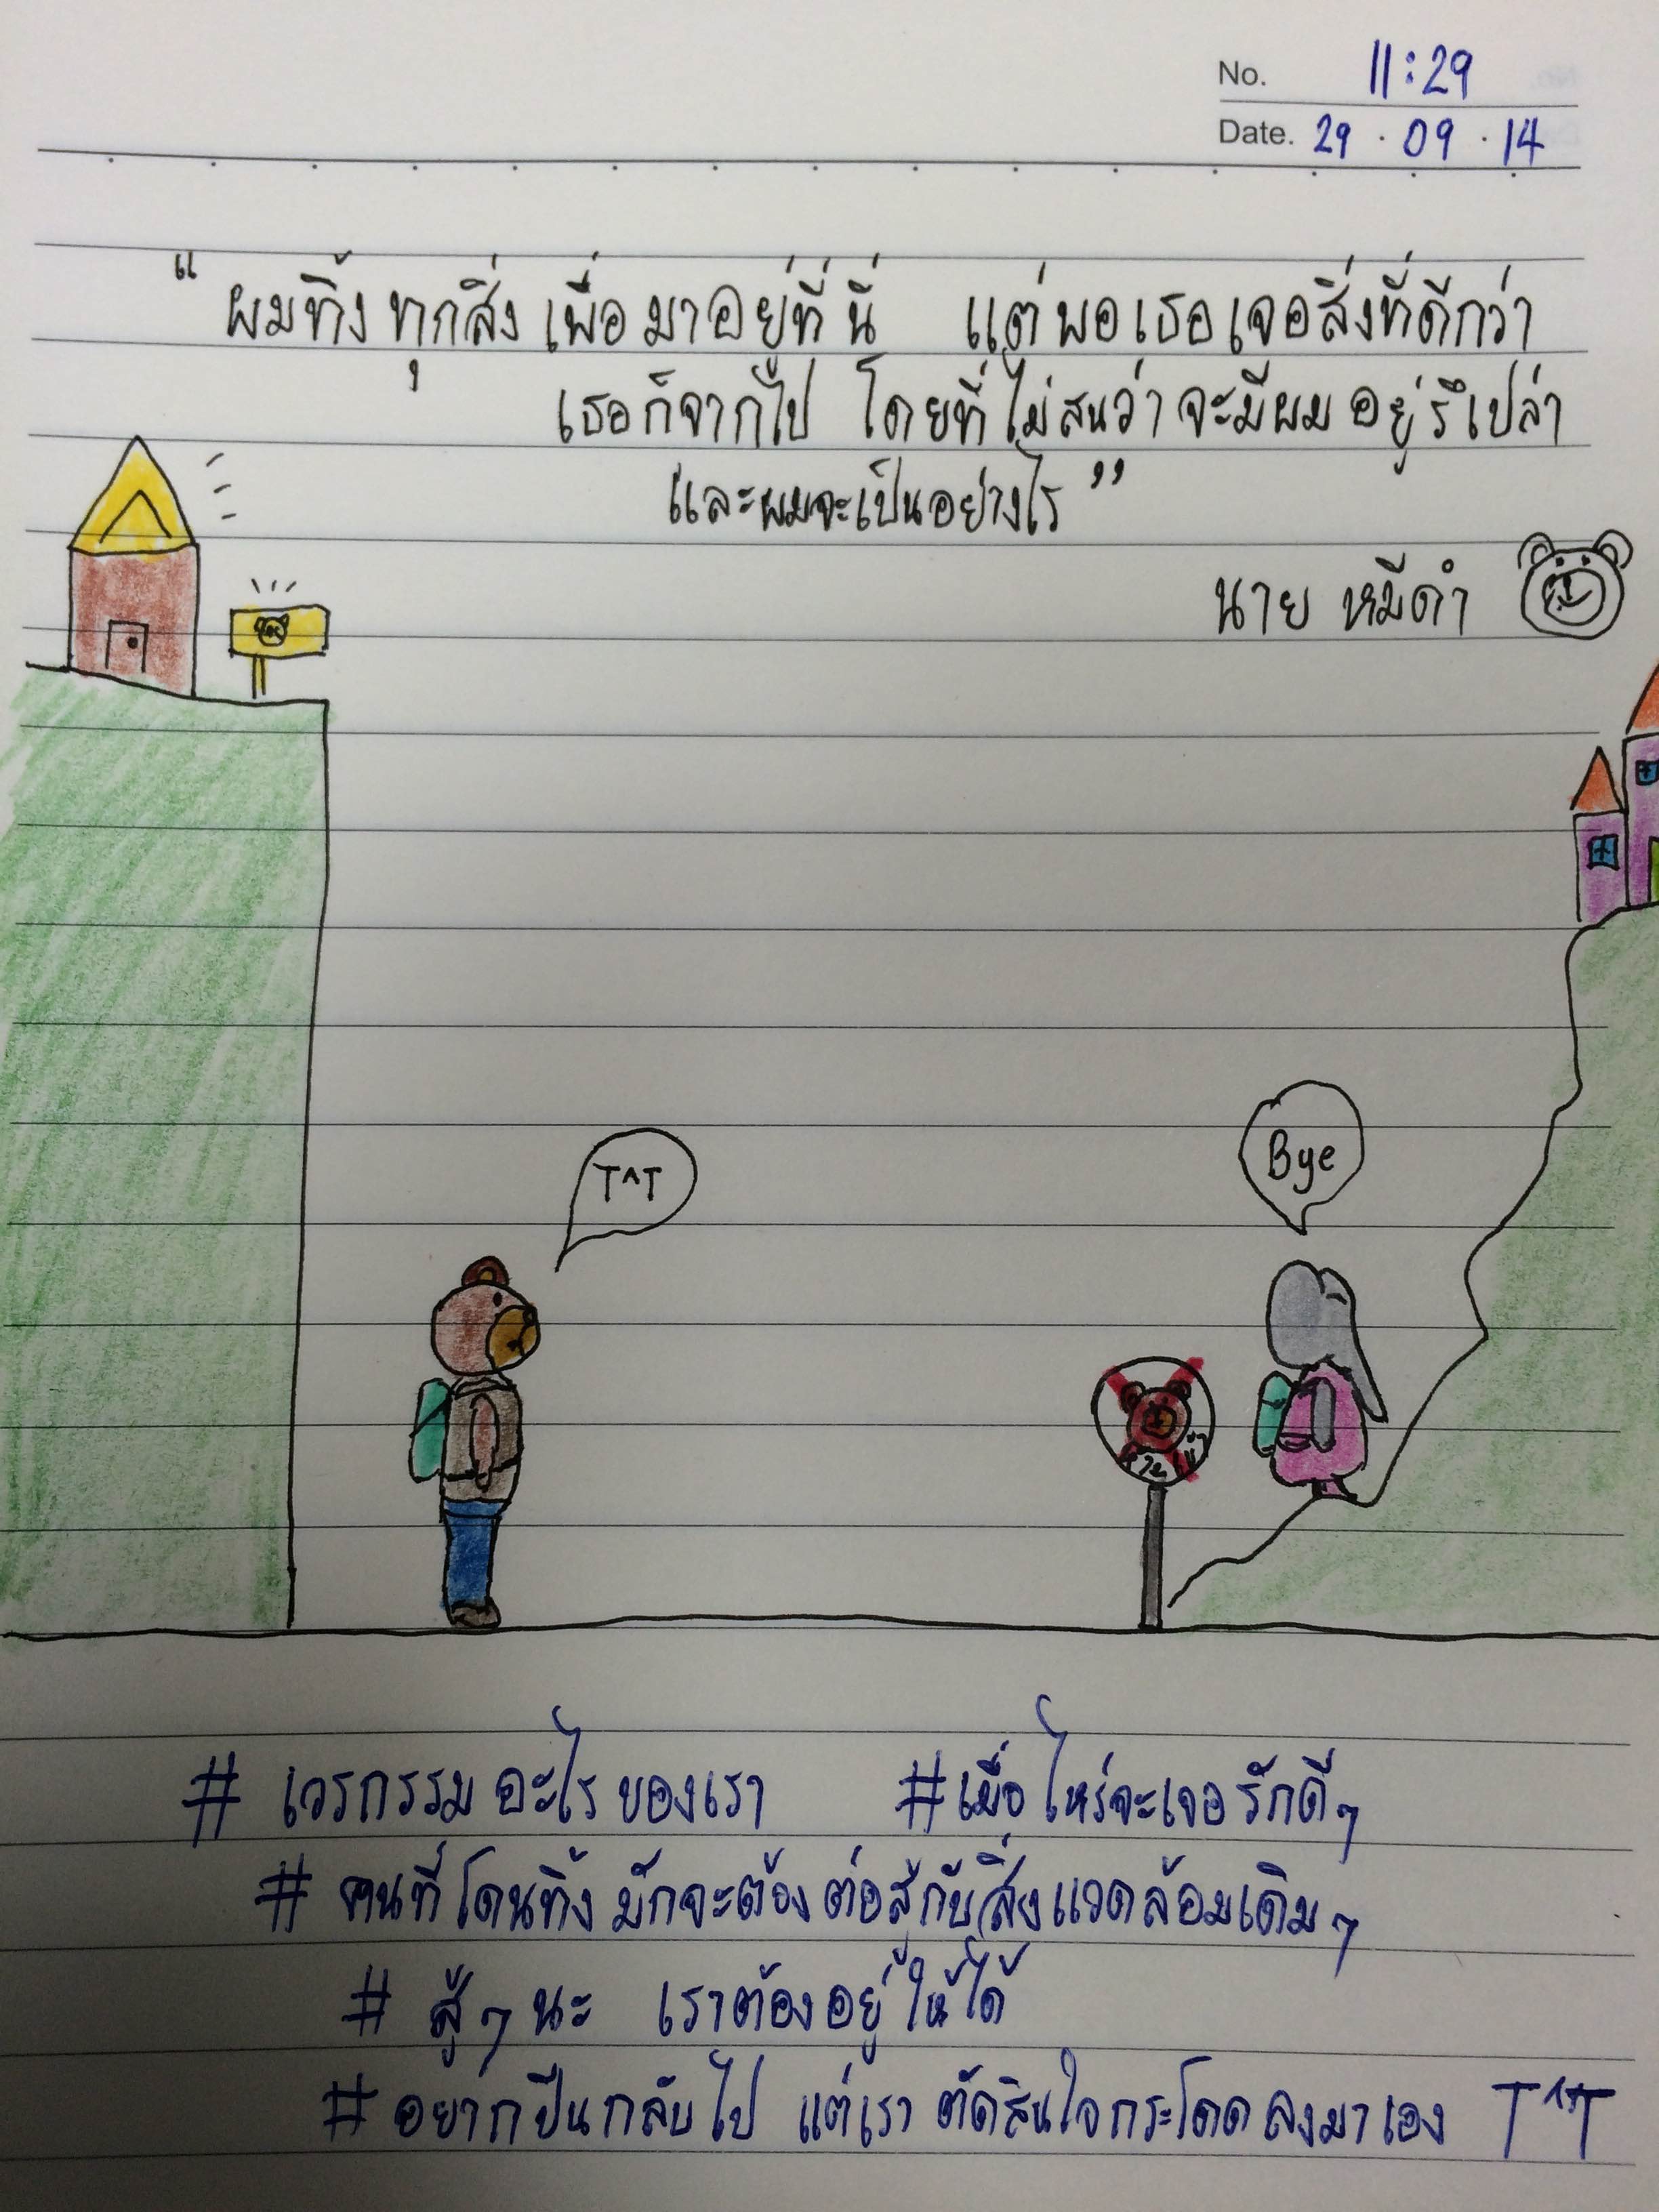 No. 11:29
Date. 29 . 09 . 14
“ ผมทิ้งทุกสิ่ง เพื่อมาอยู่ที่นี่ แต่พอเธอเจอสิ่งที่ดีกว่า
เธอก็จากไป โดยที่ไม่สนว่าจะมีผมอยู่รึเปล่า
และผมจะเป็นอย่างไร ”
นาย หมีดำ
T^T
Bye
# เวรกรรมอะไรของเรา #เมื่อไหร่จะเจอรักดีๆ
# คนที่โดนทิ้ง มักจะต้องต่อสู้กับสิ่งแวดล้อมเดิมๆ
# สู้ๆนะ เราต้องอยู่ให้ได้
# อยากปีนกลับไป แต่เราตัดสินใจกระโดดลงมาเอง T^T